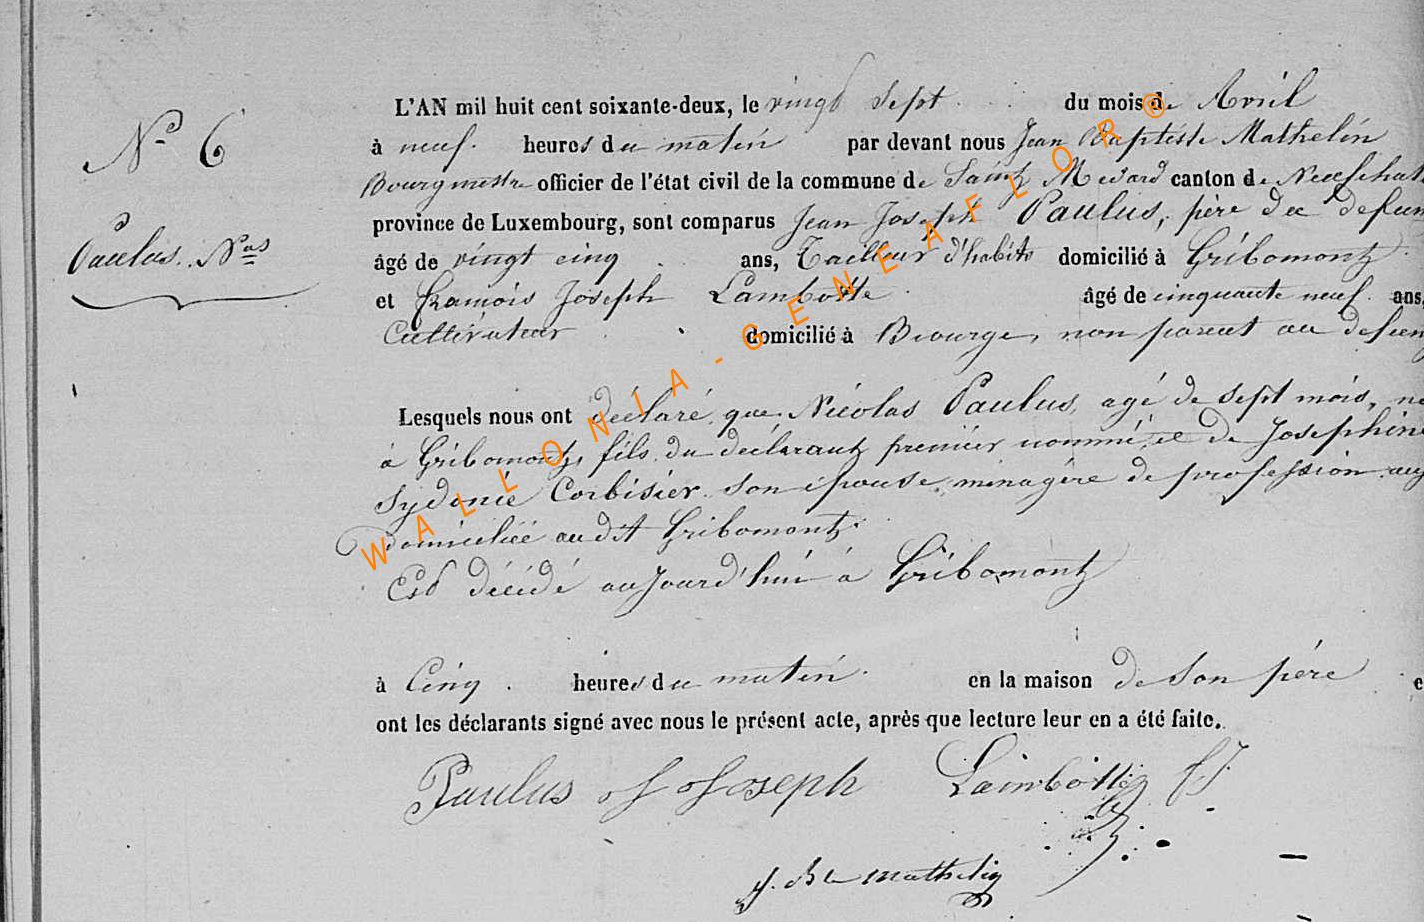 Nº 6
Paulus. Nas
L'AN mil huit cent soixante-deux, le vingt sept du mois de Avril
à neuf. heures du matin par devant nous Jean Baptiste Mathelin
Bourgmestre officier de l'état civil de la commune de Saint Medard canton de Neufchat
province de Luxembourg, sont comparus Jean Joseph Paulus, père du defun
âgé de vingt cinq ans, Tailleur d'habits domicilié à Gribomont
et François Joseph Lambotte âgé de cinquante neuf ans,
Cultivateur domicilié à non parent au defun
Lesquels nous ont déclaré que Nicolas Paulus, agé de sept mois, né
à Gribomont, fils du déclarant premier nommé et de Josephine
Sydonie Corbisier son épouse, menagère de profession
domiciliée au dit Gribomont.
Est décédé aujourd'hui à Gribomont
à Cinq heures du matin en la maison de son père e
ont les déclarants signé avec nous le présent acte, après que lecture leur en a été faite.
Paulus J Joseph Lambotte FJ
J. Bte Mathelin
WALLONIA-GENEAFLOR®